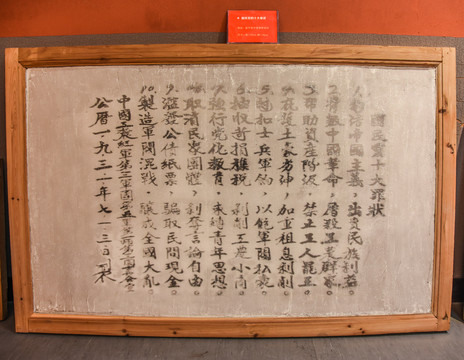 國民黨十大罪狀
1.勾结帝国主义，出賣民族利益。
2.背叛中國革命，屠殺工農群众。
3.帮助資產階級，禁止工人罷工。
4.在護土豪劣紳，加重租息剝削。
5.尅扣士兵軍餉，以飽軍閥私囊。
6.抽收苛捐雜税，剝削工農小商
7.強行党化教育，束缚青年思想
8.取消民众團體，剝奪言論自由。
9.濫發公债纸票，騙取民間现金
10.製造軍閥混戰，釀成全國大亂。
中國工農紅軍第
公曆一九三 年七 一三